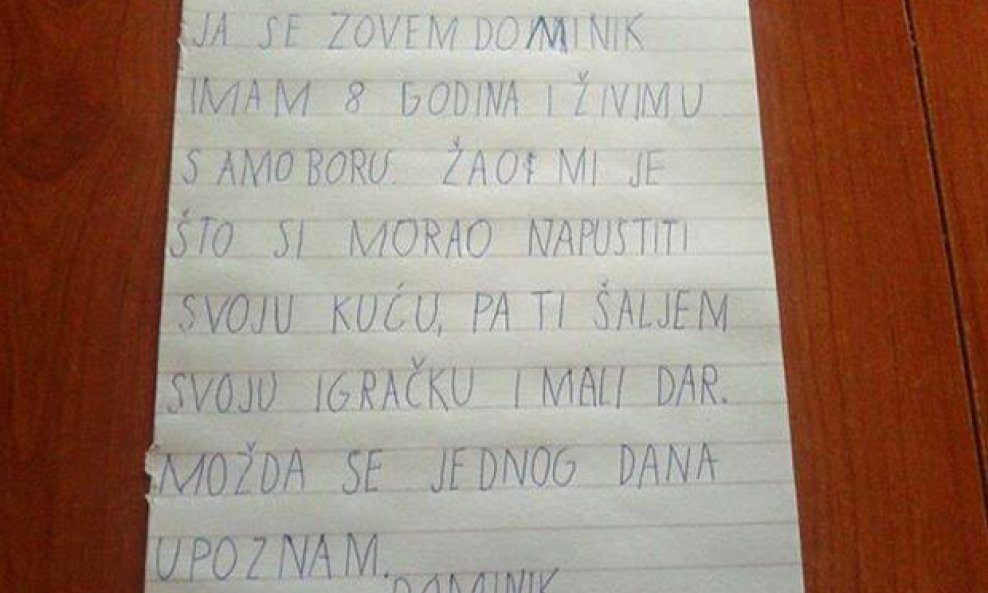 JA SE ZOVEM DOMINIK
IMAM 8 GODINA I ŽIVIM U
SAMOBORU. ŽAO MI JE
ŠTO SI MORAO NAPUSTITI
SVOJU KUĆU, PA TI ŠALJEM
SVOJU IGRAČKU I MALI DAR.
MOŽDA SE JEDNOG DANA
UPOZNAM.
DOMINIK